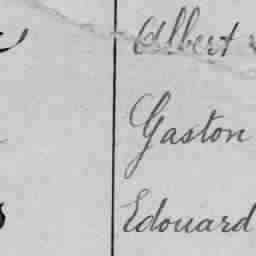 Albert
Gaston
Edouard